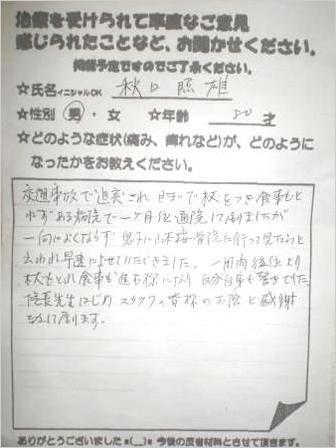 治療を受けられて率直なご意見
感じられたことなど、お聞かせください。
掲載予定ですのでご了承ください。
☆氏名イニシャルOK 秋口 照雄
☆性別 男・女 ☆年齢 50 才
☆どのような症状(痛み、痺れなど)が、どのように
なったかをお教えください。
交通事故で追突され 日まで杖をつき食事も
とれずある病院で一ヶ月位通院して居りましたが
一向によくならず 息子に山本接骨院に行って見たらと
云われ早速させていただきました。一週間後位より
杖もとれ食事も進む様になり 自分自身も驚きでした
院長先生はじめスタッフの皆様のお陰と感謝
して居ります。
ありがとうございました m(__)m 今後の反省材料とさせて頂きます。